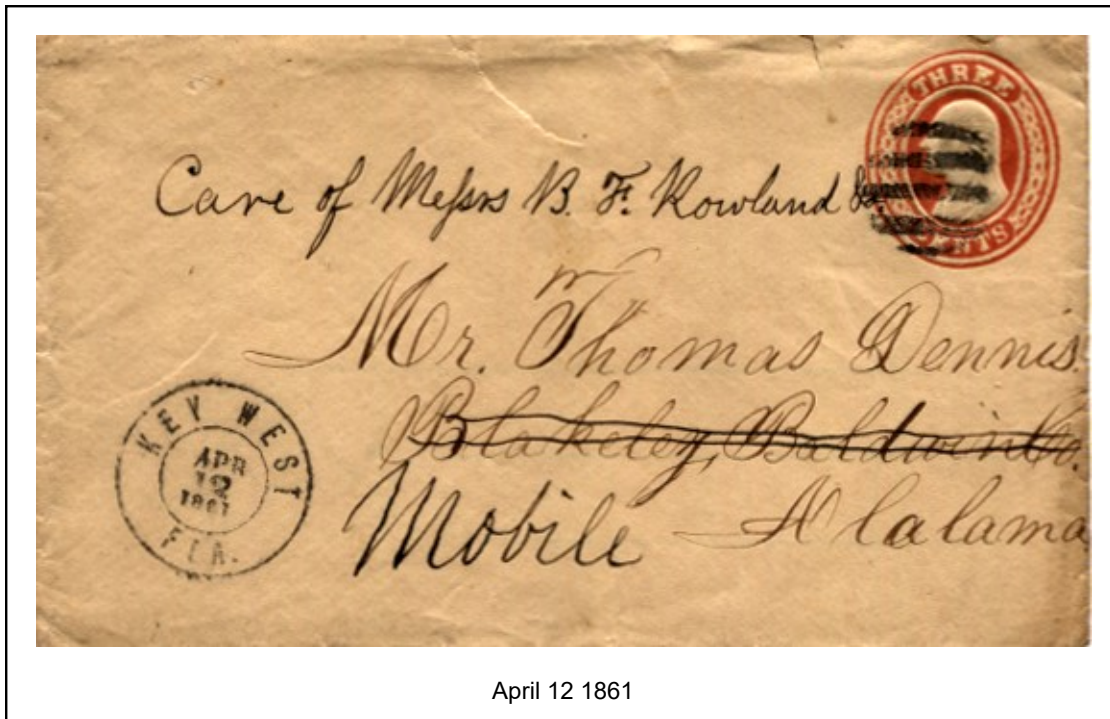 THREE
CENTS
Care of Messrs B. F. Rowland
Mr. Thomas Dennis.
Blakeley, Baldwin Co.
Mobile Alabama
KEY WEST
APR
12
1861
FLA.
April 12 1861